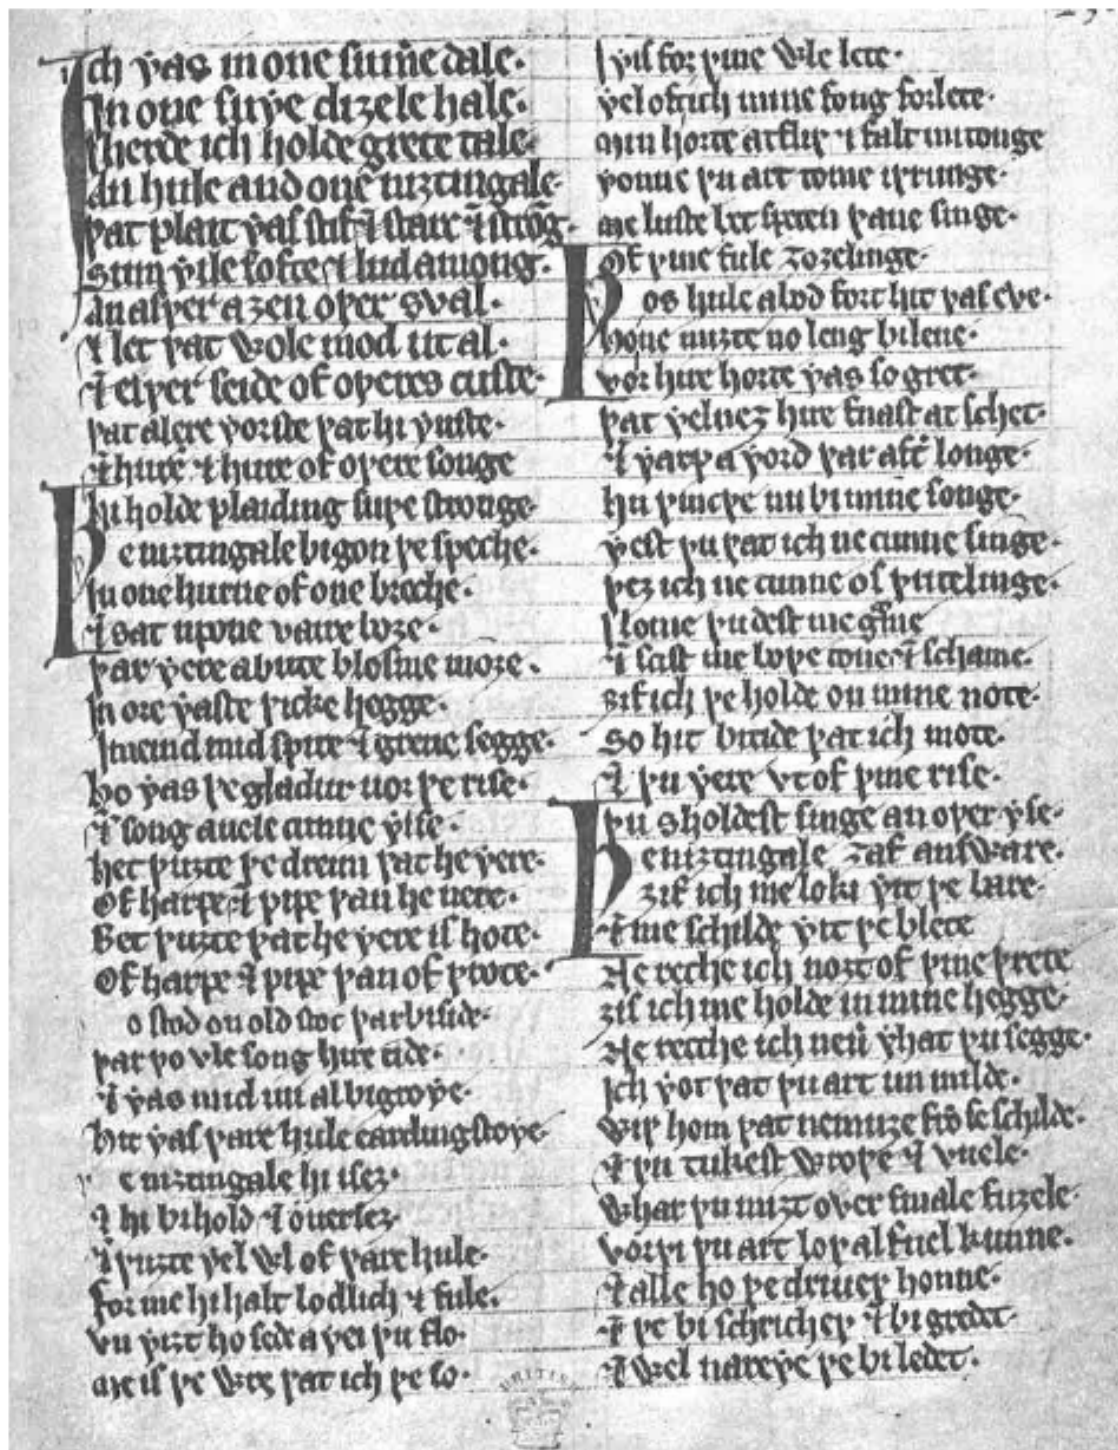 Ich ƿas in one sum̄e dale.
In one suþe diȝele hale.
Iherde ich holde grete tale.
An hule and one niȝtingale.
þat plait ƿas stif ⁊ starc ⁊ strōg.
Sum ƿile softe ⁊ lud among.
An aiþer aȝen oþer sval.
⁊ let þat wole mod ut al.
⁊ eiþer seide of oþeres custe.
þat alere ƿorste þat hi ƿuste.
⁊ hure ⁊ hure of oþere songe
Hi holde plaiding suþe stronge.
Þe niȝtingale bigon þe speche.
In one hurne of one breche.
⁊ sat upone vaire boȝe.
þar ƿere abute blosme inoȝe.
In ore ƿaste þicke hegge.
Imeind mid spire ⁊ grene segge.
Ho ƿas þe gladur uor þe rise.
⁊ song auele cunne ƿise.
Het þuȝte þe dreim þat he ƿere.
Of harpe ⁊ pipe þan he nere.
Bet þuȝte þat he ƿere ishote.
Of harpe ⁊ pipe þan of þrote.
o stod on old stoc þar biside.
þar þo vle song hire tide.
⁊ ƿas mid iui al bigroƿe.
hit ƿas þare hule eardingstoƿe.
e niȝtingale hi iseȝ.
⁊ hi bihold ⁊ ouerseȝ.
⁊ þuȝte ƿel wl of þare hule.
for me hi halt lodlich ⁊ fule.
vnƿiȝt ho sede aƿei þu flo.
me is þe wrs þat ich þe so.
Iƿis for þine wle lete.
ƿel oft ich mine song forlete.
min horte atfliþ ⁊ falt mi tonge
ƿonne þu art tome iþrunge.
me luste bet speten þane singe.
Of þine fule ȝoȝelinge.
Þos hule abod fort hit ƿas eve.
Ho ne miȝte no leng bileue.
vor hire horte ƿas so gret.
þat ƿelneȝ hire fnast at schet.
⁊ ƿarp a ƿord þar aft̄ longe.
hu þincþe nu bi mine songe.
ƿest þu þat ich ne cunne singe.
þeȝ ich ne cunne of ƿritelinge.
Ilome þu dest me gͣme
⁊ seist me boþe tone ⁊ schame.
ȝif ich þe holde on mine note.
So hit bitide þat ich mote.
⁊ þu ƿere vt of þine rise.
þu sholdest singe an oþer ƿse.
Þe niȝtingale ȝaf answare.
ȝif ich me loki ƿit þe bare.
⁊ me schilde ƿit þe blete
Ne reche ich noȝt of þine þrete
ȝif ich me holde in mine hegge.
Ne recche ich neū ƿhat þu segge.
Ich ƿot þat þu art unmilde.
wiþ hom þat ne muȝe frō se schilde.
⁊ þu tukest wroþe ⁊ vuele.
whar þu miȝt over smale fuȝele.
vorþi þu art loþ al fuel kunne.
⁊ alle ho þe driueþ honne.
⁊ þe bi scricheþ ⁊ bi gredet.
⁊ wel narewe þe bi ledet.